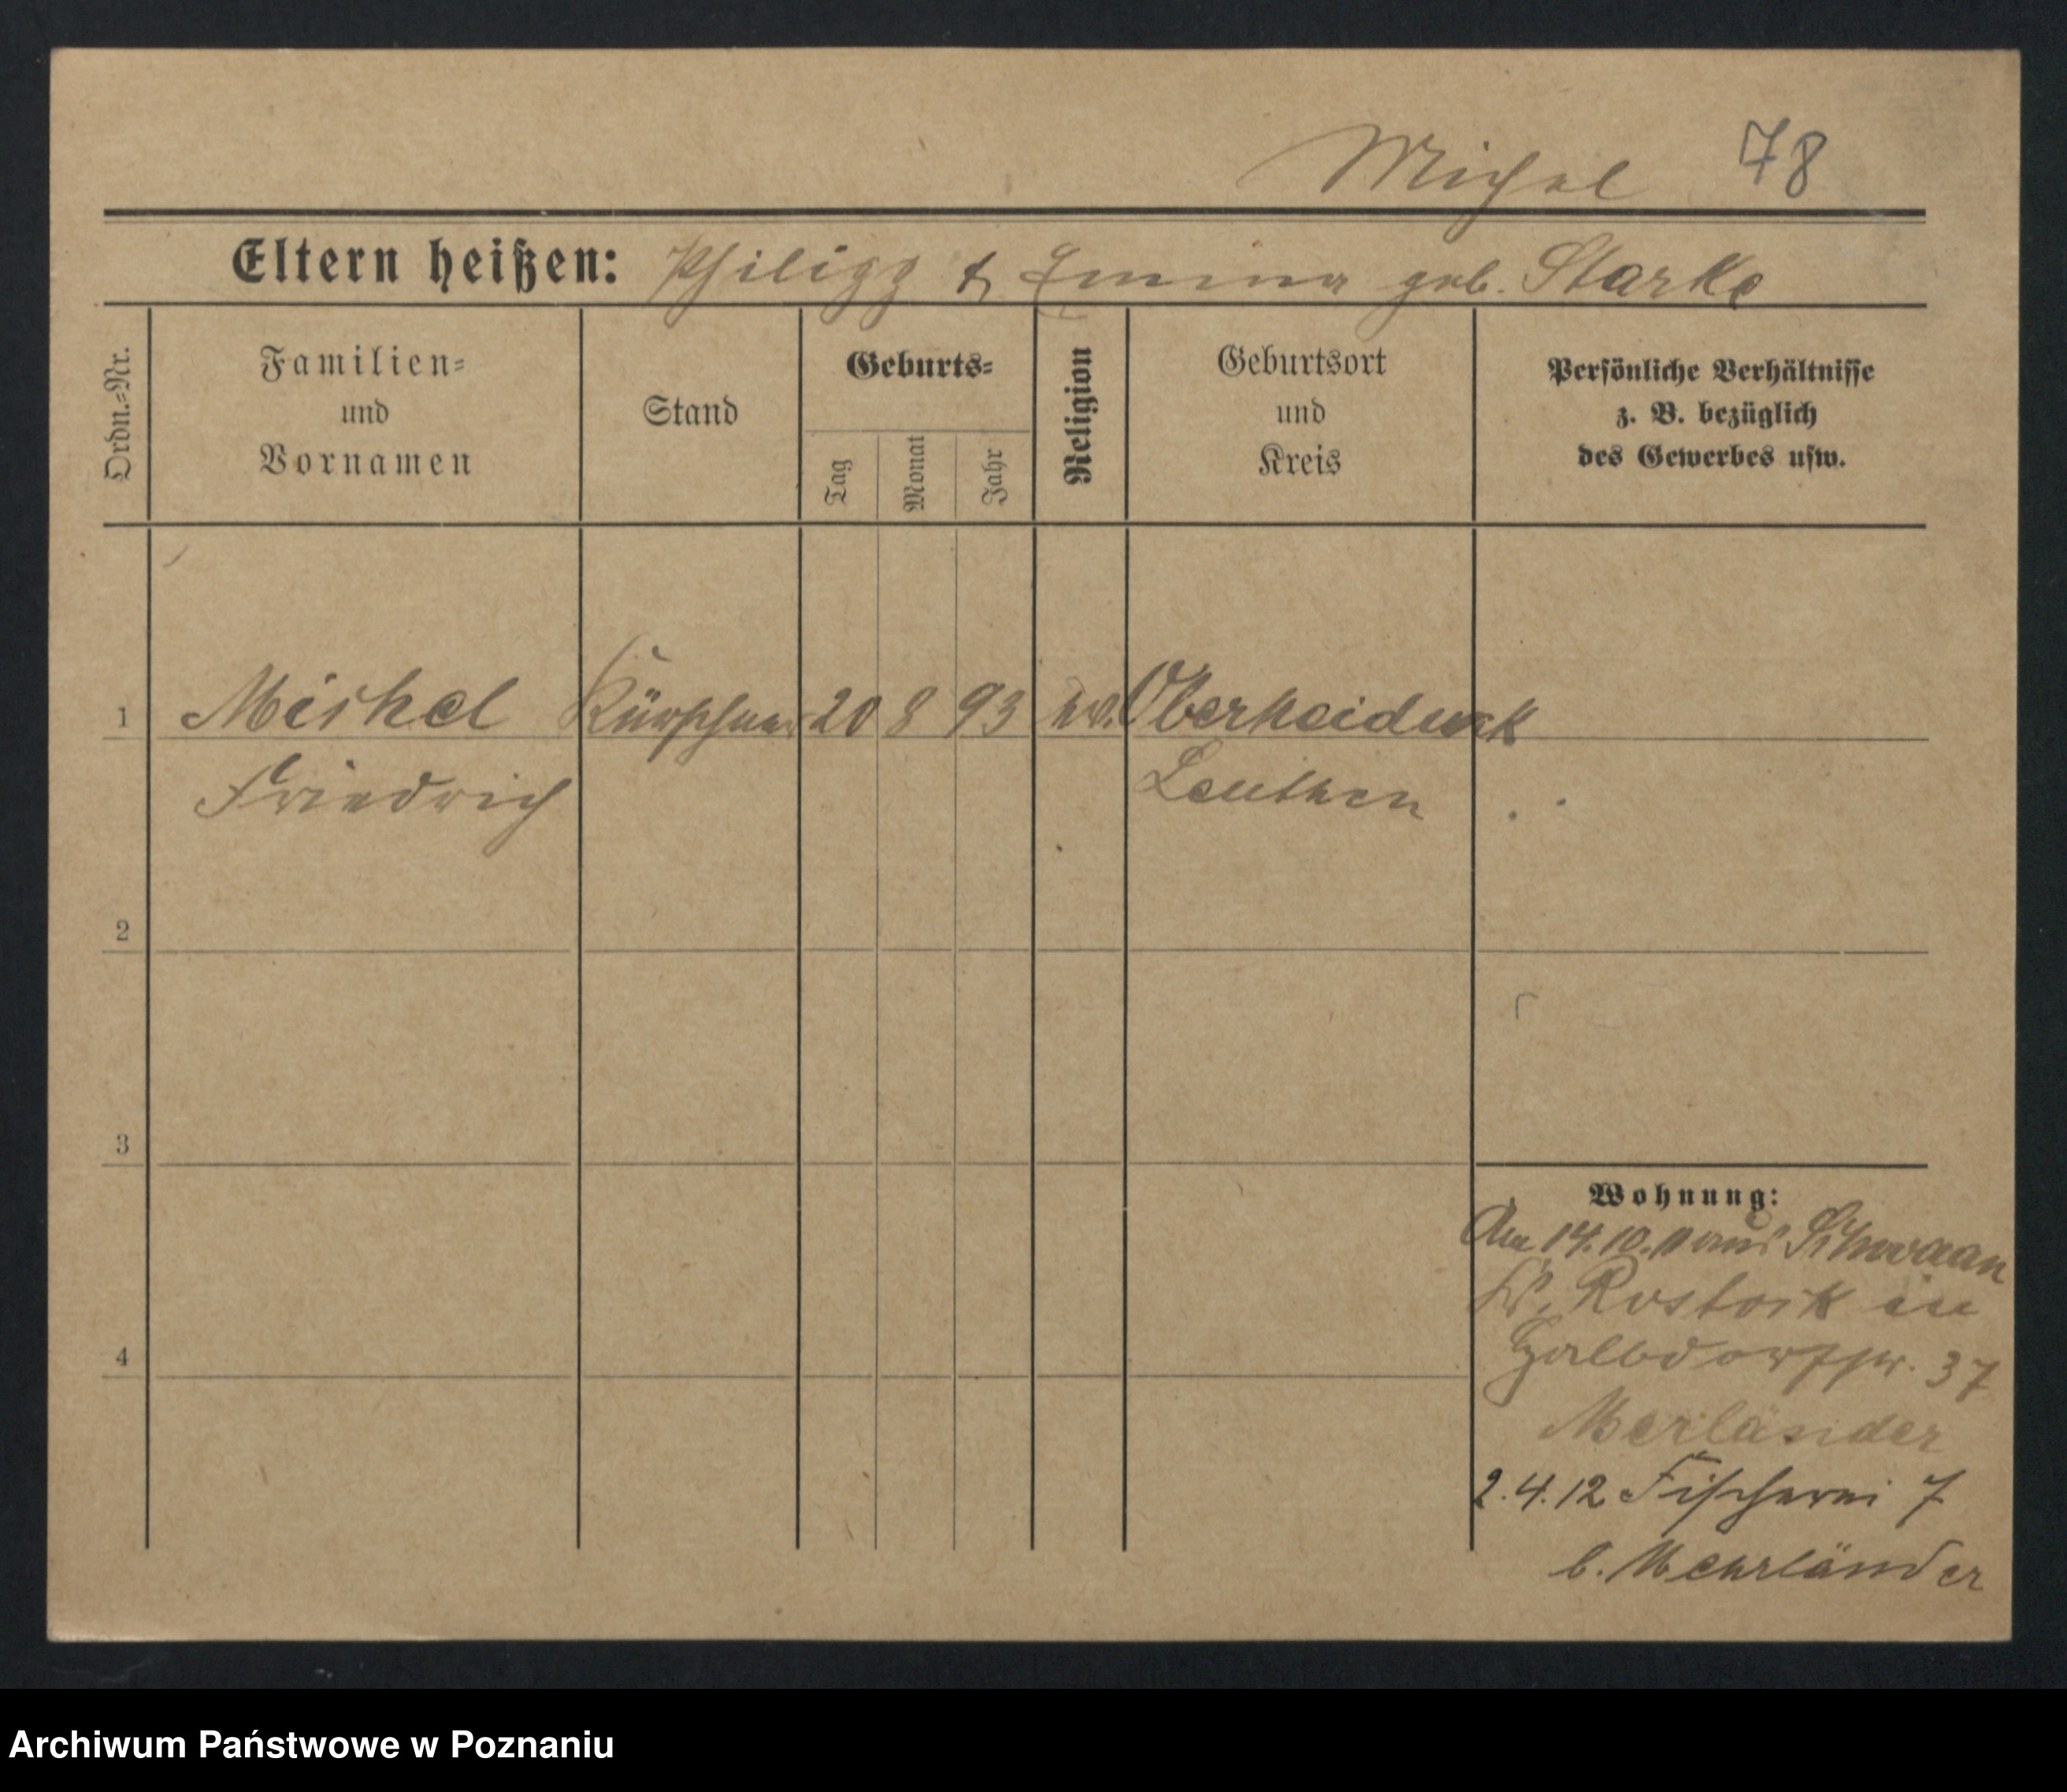 Michel 78
Eltern heißen: Philipp & Emma geb. Starke
Ordn.-Nr.
Familien-
und
Vornamen
Stand
Geburts-
Tag
Monat
Jahr
Religion
Geburtsort
und
Kreis
Persönliche Verhältnisse
z. B. bezüglich
des Gewerbes usw.
1 Michel Kürschner 20 8 93 ev. Oberheiduck
Friedrich Leuthen
2
3
4
Wohnung:
Am 14.10.11 aus Schwaan
Kr. Rostock in
Halbdorfstr. 37
Merländer
2.4.12 Fischerei 7
b. Mehrländer
Archiwum Państwowe w Poznaniu